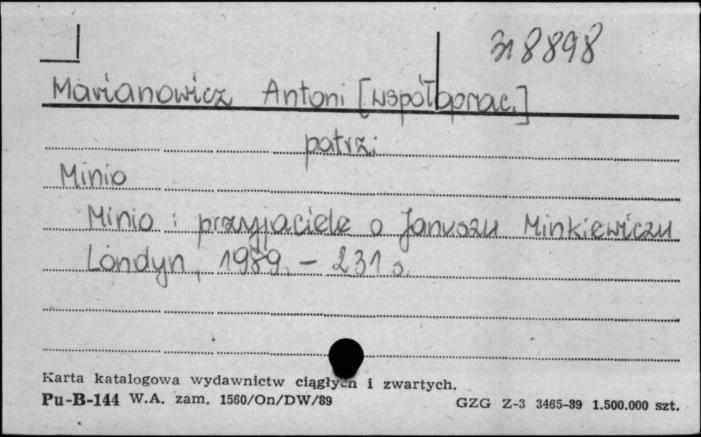 318898
Marianowicz Antoni [współoprac.]
patrz:
Minio
Minio : przyjaciele o Januszu Minkiewiczu
Londyn, 1989. – 231 s.
Karta katalogowa wydawnictw ciągłych i zwartych.
Pu-B-144 W.A. zam. 1560/On/DW/89 GZG Z-3 3465-89 1.500.000 szt.